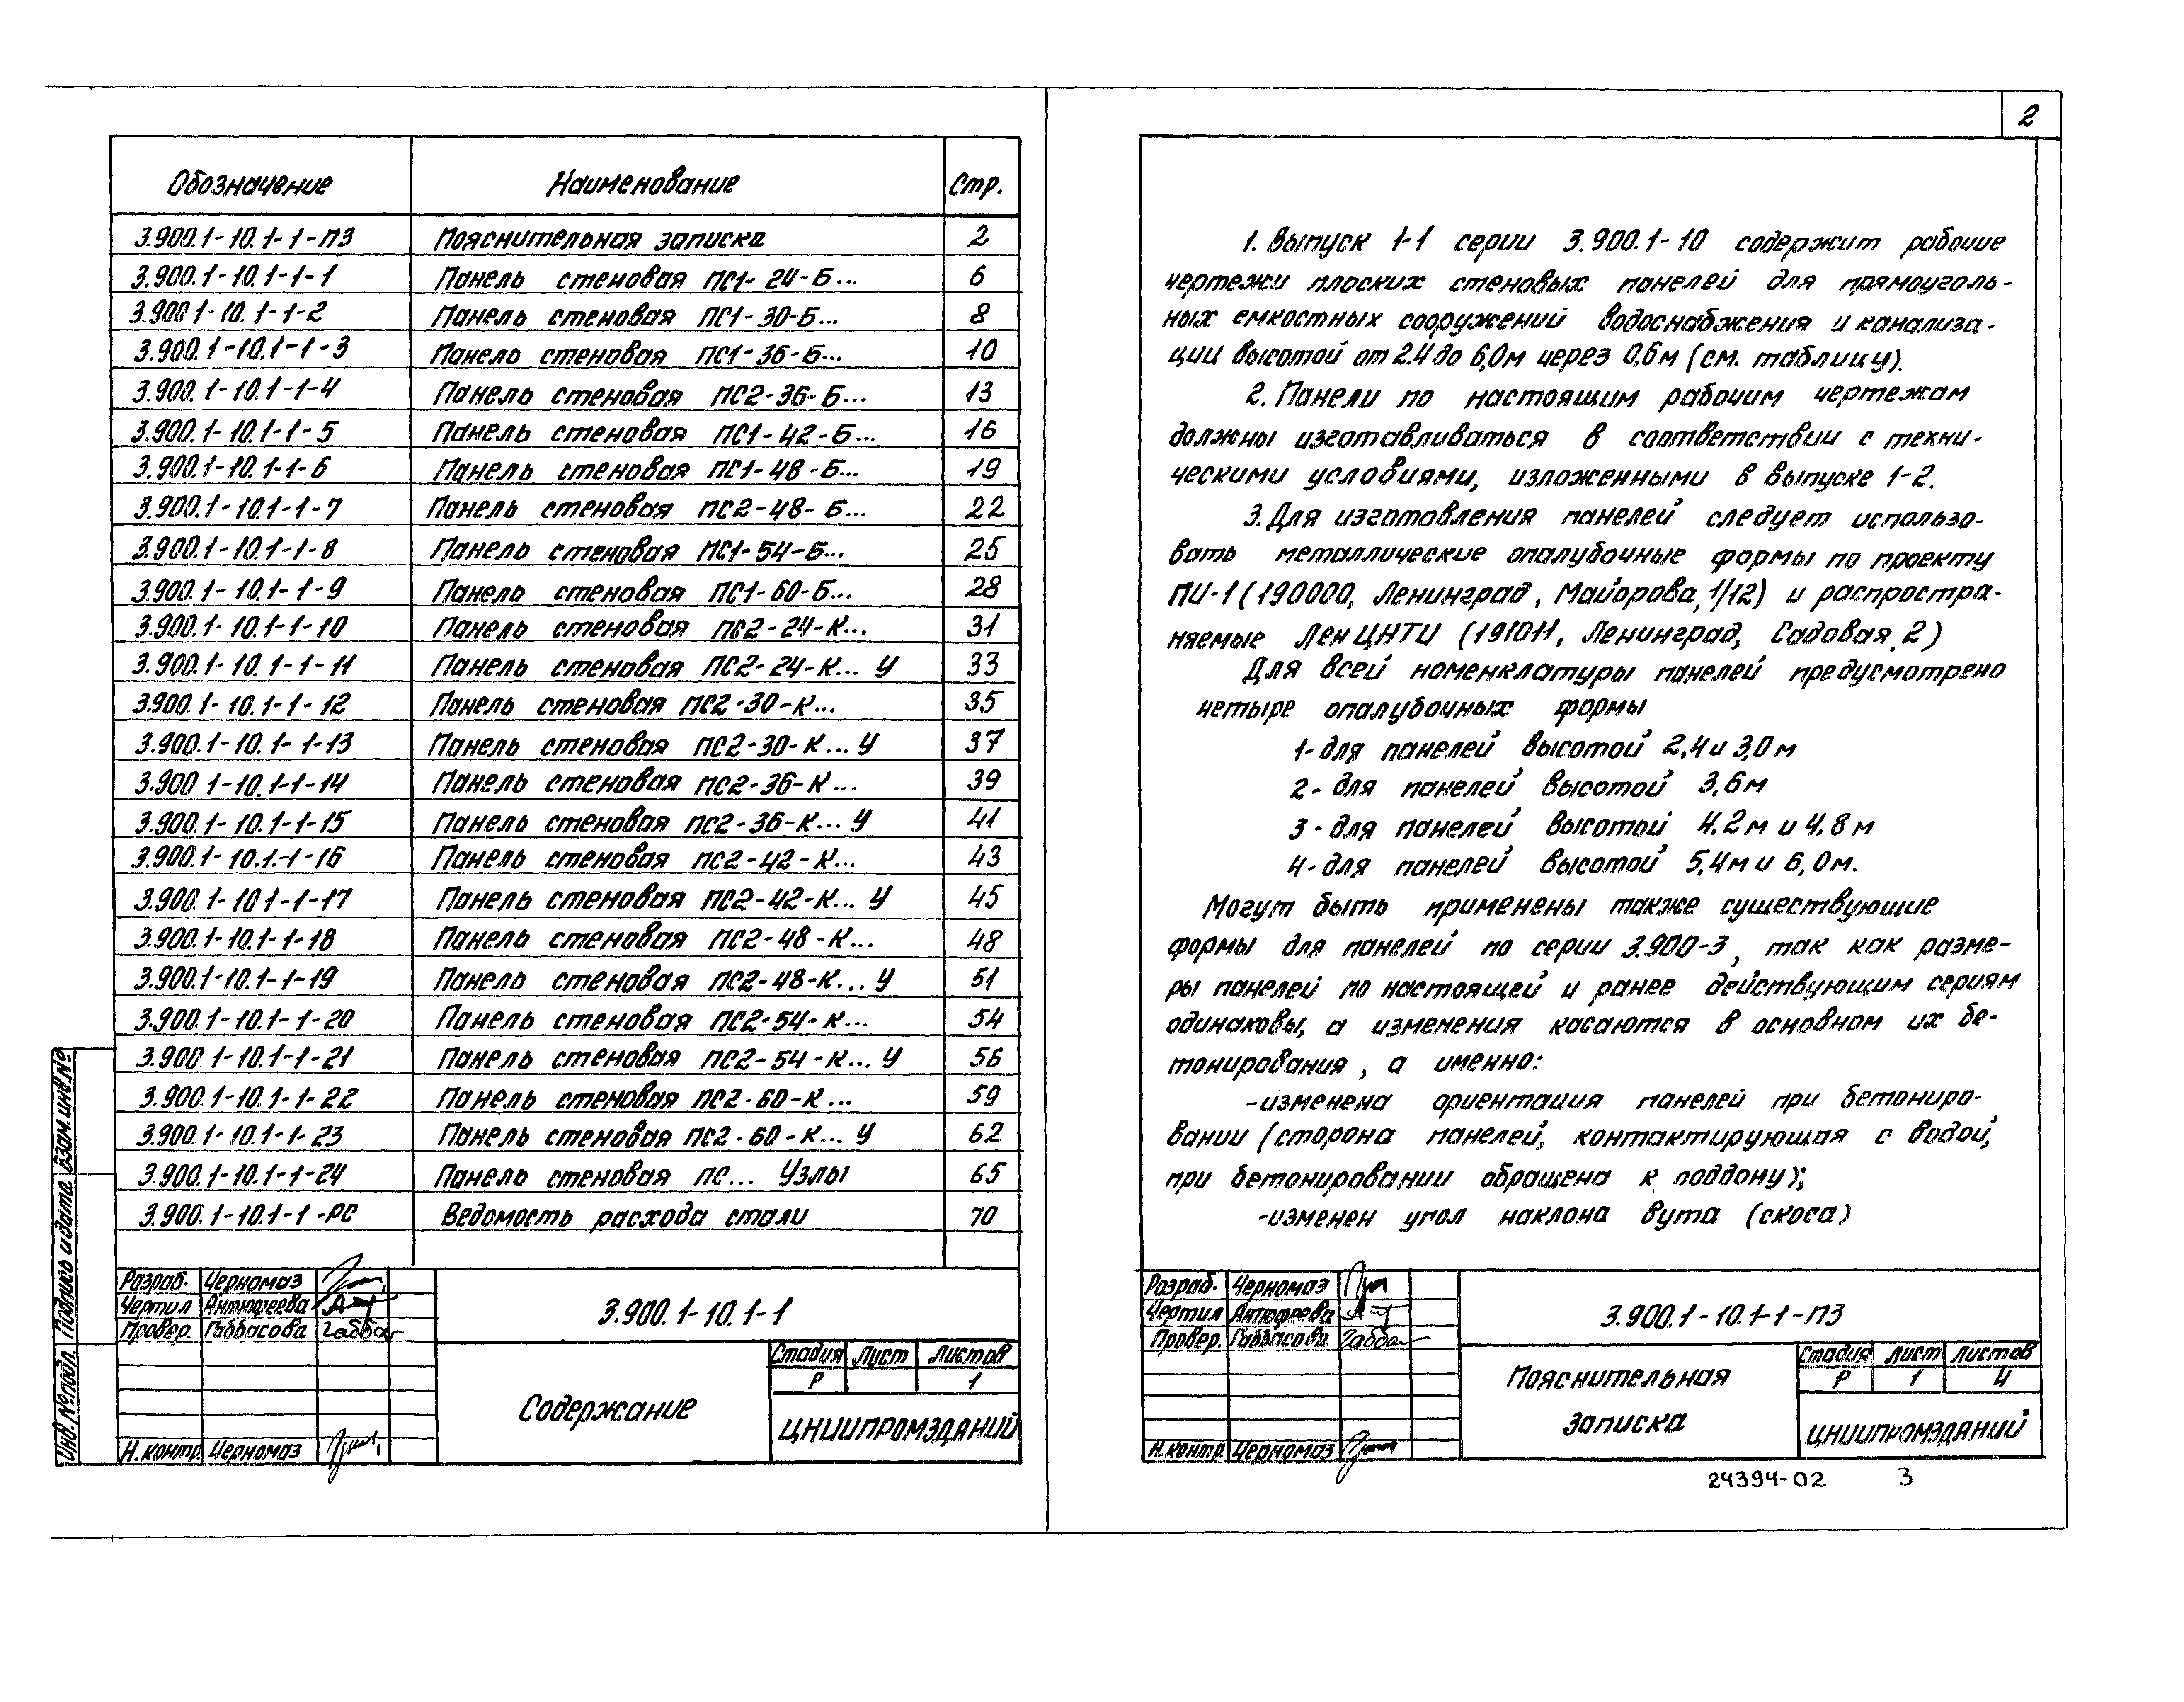 Обозначение Наименование Стр.
3.900.1-10.1-1-ПЗ Пояснительная записка 2
3.900.1-10.1-1-1 Панель стеновая ПС1-24-Б... 6
3.900 1-10. 1-1-2 Панель стеновая ПС1-30-Б... 8
3.900.1-10.1-1-3 Панель стеновая ПС1-36-Б... 10
3.900. 1-10.1-1-4 Панель стеновая ПС2-36-Б... 13
3.900.1-10.1-1-5 Панель стеновая ПС1-42-Б... 16
3.900.1-10.1-1-6 Панель стеновая ПС1-48-Б... 19
3.900.1-10.1-1-7 Панель стеновая ПС2-48-Б... 22
3.900.1-10.1-1-8 Панель стеновая ПС1-54-Б... 25
3.900.1-10.1-1-9 Панель стеновая ПС1-60-Б... 28
3.900.1-10.1-1-10 Панель стеновая ПС2-24-К... 31
3.900.1-10.1-1-11 Панель стеновая ПС2-24-К... У 33
3.900.1-10.1-1-12 Панель стеновая ПС2-30-К... 35
3.900.1-10.1-1-13 Панель стеновая ПС2-30-К... У 37
3.900 1-10.1-1-14 Панель стеновая ПС2-36-К... 39
3.900.1-10.1-1-15 Панель стеновая ПС2-36-К... У 41
3.900.1-10.1.-1-16 Панель стеновая ПС2-42-К... 43
3.900.1-10 1-1-17 Панель стеновая ПС2-42-К... У 45
3.900.1-10.1-1-18 Панель стеновая ПС2-48-К... 48
3.900.1-10.1-1-19 Панель стеновая ПС2-48-К... У 51
3.900.1-10.1-1-20 Панель стеновая ПС2-54-К... 54
3.900.1-10.1-1-21 Панель стеновая ПС2-54-К... У 56
3.900.1-10.1-1-22 Панель стеновая ПС2-60-К... 59
3.900.1-10.1-1-23 Панель стеновая ПС2-60-К... У 62
3.900.1-10.1-1-24 Панель стеновая ПС... Узлы 65
3.900.1-10.1-1-РС Ведомость расхода стали 70
Разраб. Черномаз
Чертил Антюфеева
Провер. Габбасова Габбас
Н.контр. Черномаз
3.900.1-10.1-1
Содержание
Стадия Лист Листов
Р 1
ЦНИИПРОМЗДАНИЙ
Инв.№подл. Подпись и дата Взам.инв.№
2
1. Выпуск 1-1 серии 3.900.1-10 содержит рабочие
чертежи плоских стеновых панелей для прямоуголь-
ных емкостных сооружений водоснабжения и канализа-
ции высотой от 2.4 до 6,0м через 0,6м (см. таблицу).
2. Панели по настоящим рабочим чертежам
должны изготавливаться в соответствии с техни-
ческими условиями, изложенными в выпуске 1-2.
3. Для изготовления панелей следует использо-
вать металлические опалубочные формы по проекту
ПИ-1 (190000, Ленинград, Майорова, 1/12) и распростра-
няемые ЛенЦНТИ (191011, Ленинград, Садовая, 2)
Для всей номенклатуры панелей предусмотрено
четыре опалубочных формы
1- для панелей высотой 2,4 и 3,0м
2- для панелей высотой 3,6м
3- для панелей высотой 4.2м и 4.8м
4- для панелей высотой 5,4м и 6,0м.
Могут быть применены также существующие
формы для панелей по серии 3.900-3, так как разме-
ры панелей по настоящей и ранее действующим сериям
одинаковы, а изменения касаются в основном их бе-
тонирования, а именно:
-изменена ориентация панелей при бетониро-
вании (сторона панелей, контактирующая с водой,
при бетонировании обращена к поддону);
-изменен угол наклона вута (скоса)
Разраб. Черномаз
Чертил Антюфеева
Провер. Габбасова Габбас
Н.контр. Черномаз
3.900.1-10.1-1-ПЗ
Пояснительная
записка
Стадия Лист Листов
Р 1 4
ЦНИИПРОМЗДАНИЙ
24394-02 3